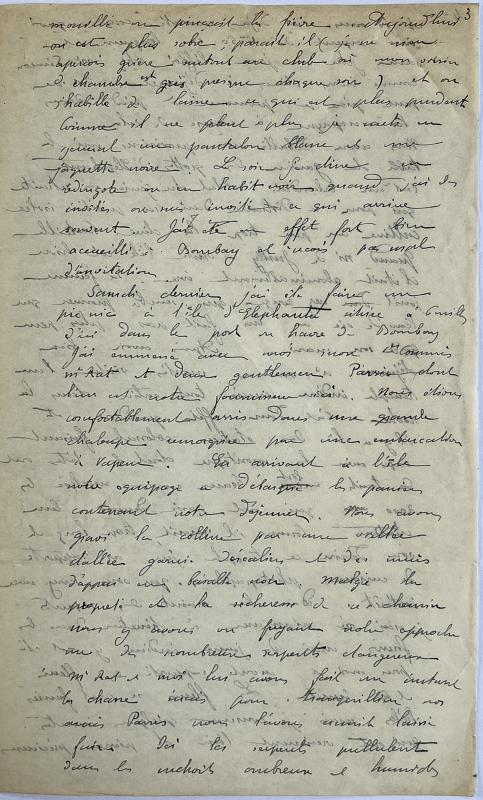 3
mouillé on pinçait la fièvre Aujourd'hui
on est plus sobre, paraît il (je ne m'en
aperçois guère surtout au club où mon voisin
de chambre est gris presque chaque soir) et on
s'habille de laine ce qui est plus prudent.
Comme il ne pleut à plus je sors en
un pantalon blanc et
jaquette noire Le soir
redingote ou en habit noir quand j'ai des
invités ou suis invité ce qui arrive
souvent J'ai été en effet fort bien
accueilli à Bombay et j'avais pas mal
d'invitations
Samedi dernier j'ai été faire un
pic nic à l'île d'Elephanta située à 6 milles
d'ici dans le port ou havre de Bombay
J'ai emmené avec moi mon 1er Commis
Mr Rat et deux gentlemen Parsis dont
l'un est notre fournisseur ici. Nous étions
confortablement assis dans une grande
chaloupe remorquée par une embarcation
à vapeur. En arrivant à l'île
notre équipage a les paniers
contenant notre déjeuner. Nous avons
gravi la colline par une
d'allée garnie d'escaliers et des murs
d'appui en basalte noir malgré la
propreté et la sécheresse de ce chemin
nous y avons vu fuyant notre approche
un de nombreux serpents dangereux
Mr Rat et moi lui avons fait un instant
la chasse mais pour tranquilliser nos
amis Parsis nous l'avons ensuite laissé
fuir. Ici les serpents pullulent
dans les endroits ombreux et humides